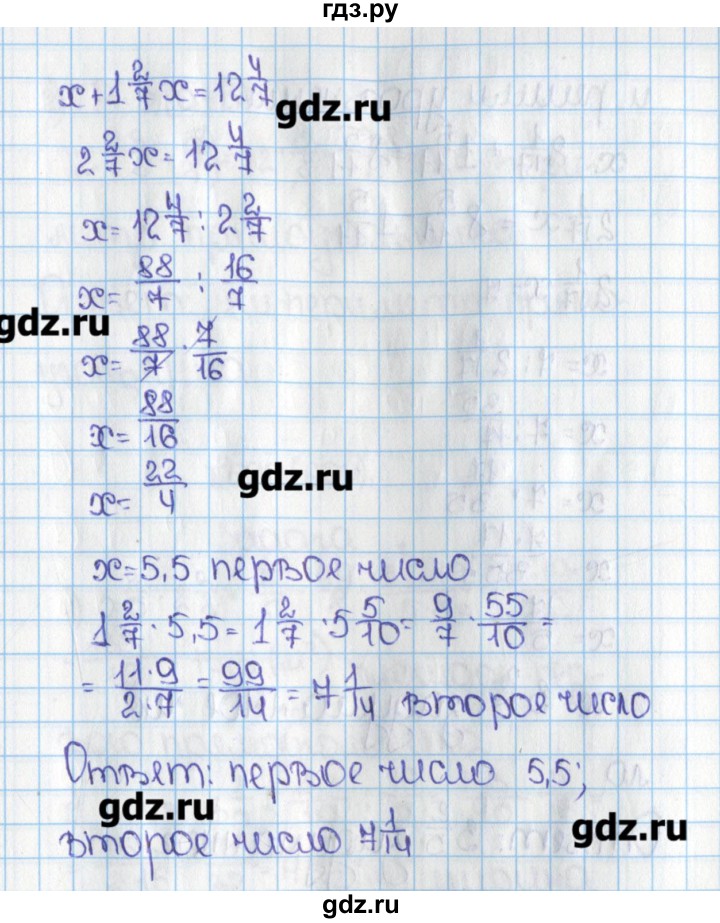 гдз.ру
x + 1 2/7 x = 12 4/7
gdz.ru
2 2/7 x = 12 4/7
x = 12 4/7 : 2 2/7
x = 88/7 : 16/7
gdz.ru
x = 88/7 · 7/16
x = 88/16
x = 22/4
gdz.ru
x = 5,5 первое число
1 2/7 · 5,5 = 1 2/7 · 5 5/10 = 9/7 · 55/10 =
= 11·9/2·7 = 99/14 = 7 1/14 второе число
Ответ: первое число 5,5;
gdz.ru
второе число 7 1/14
gdz.ru